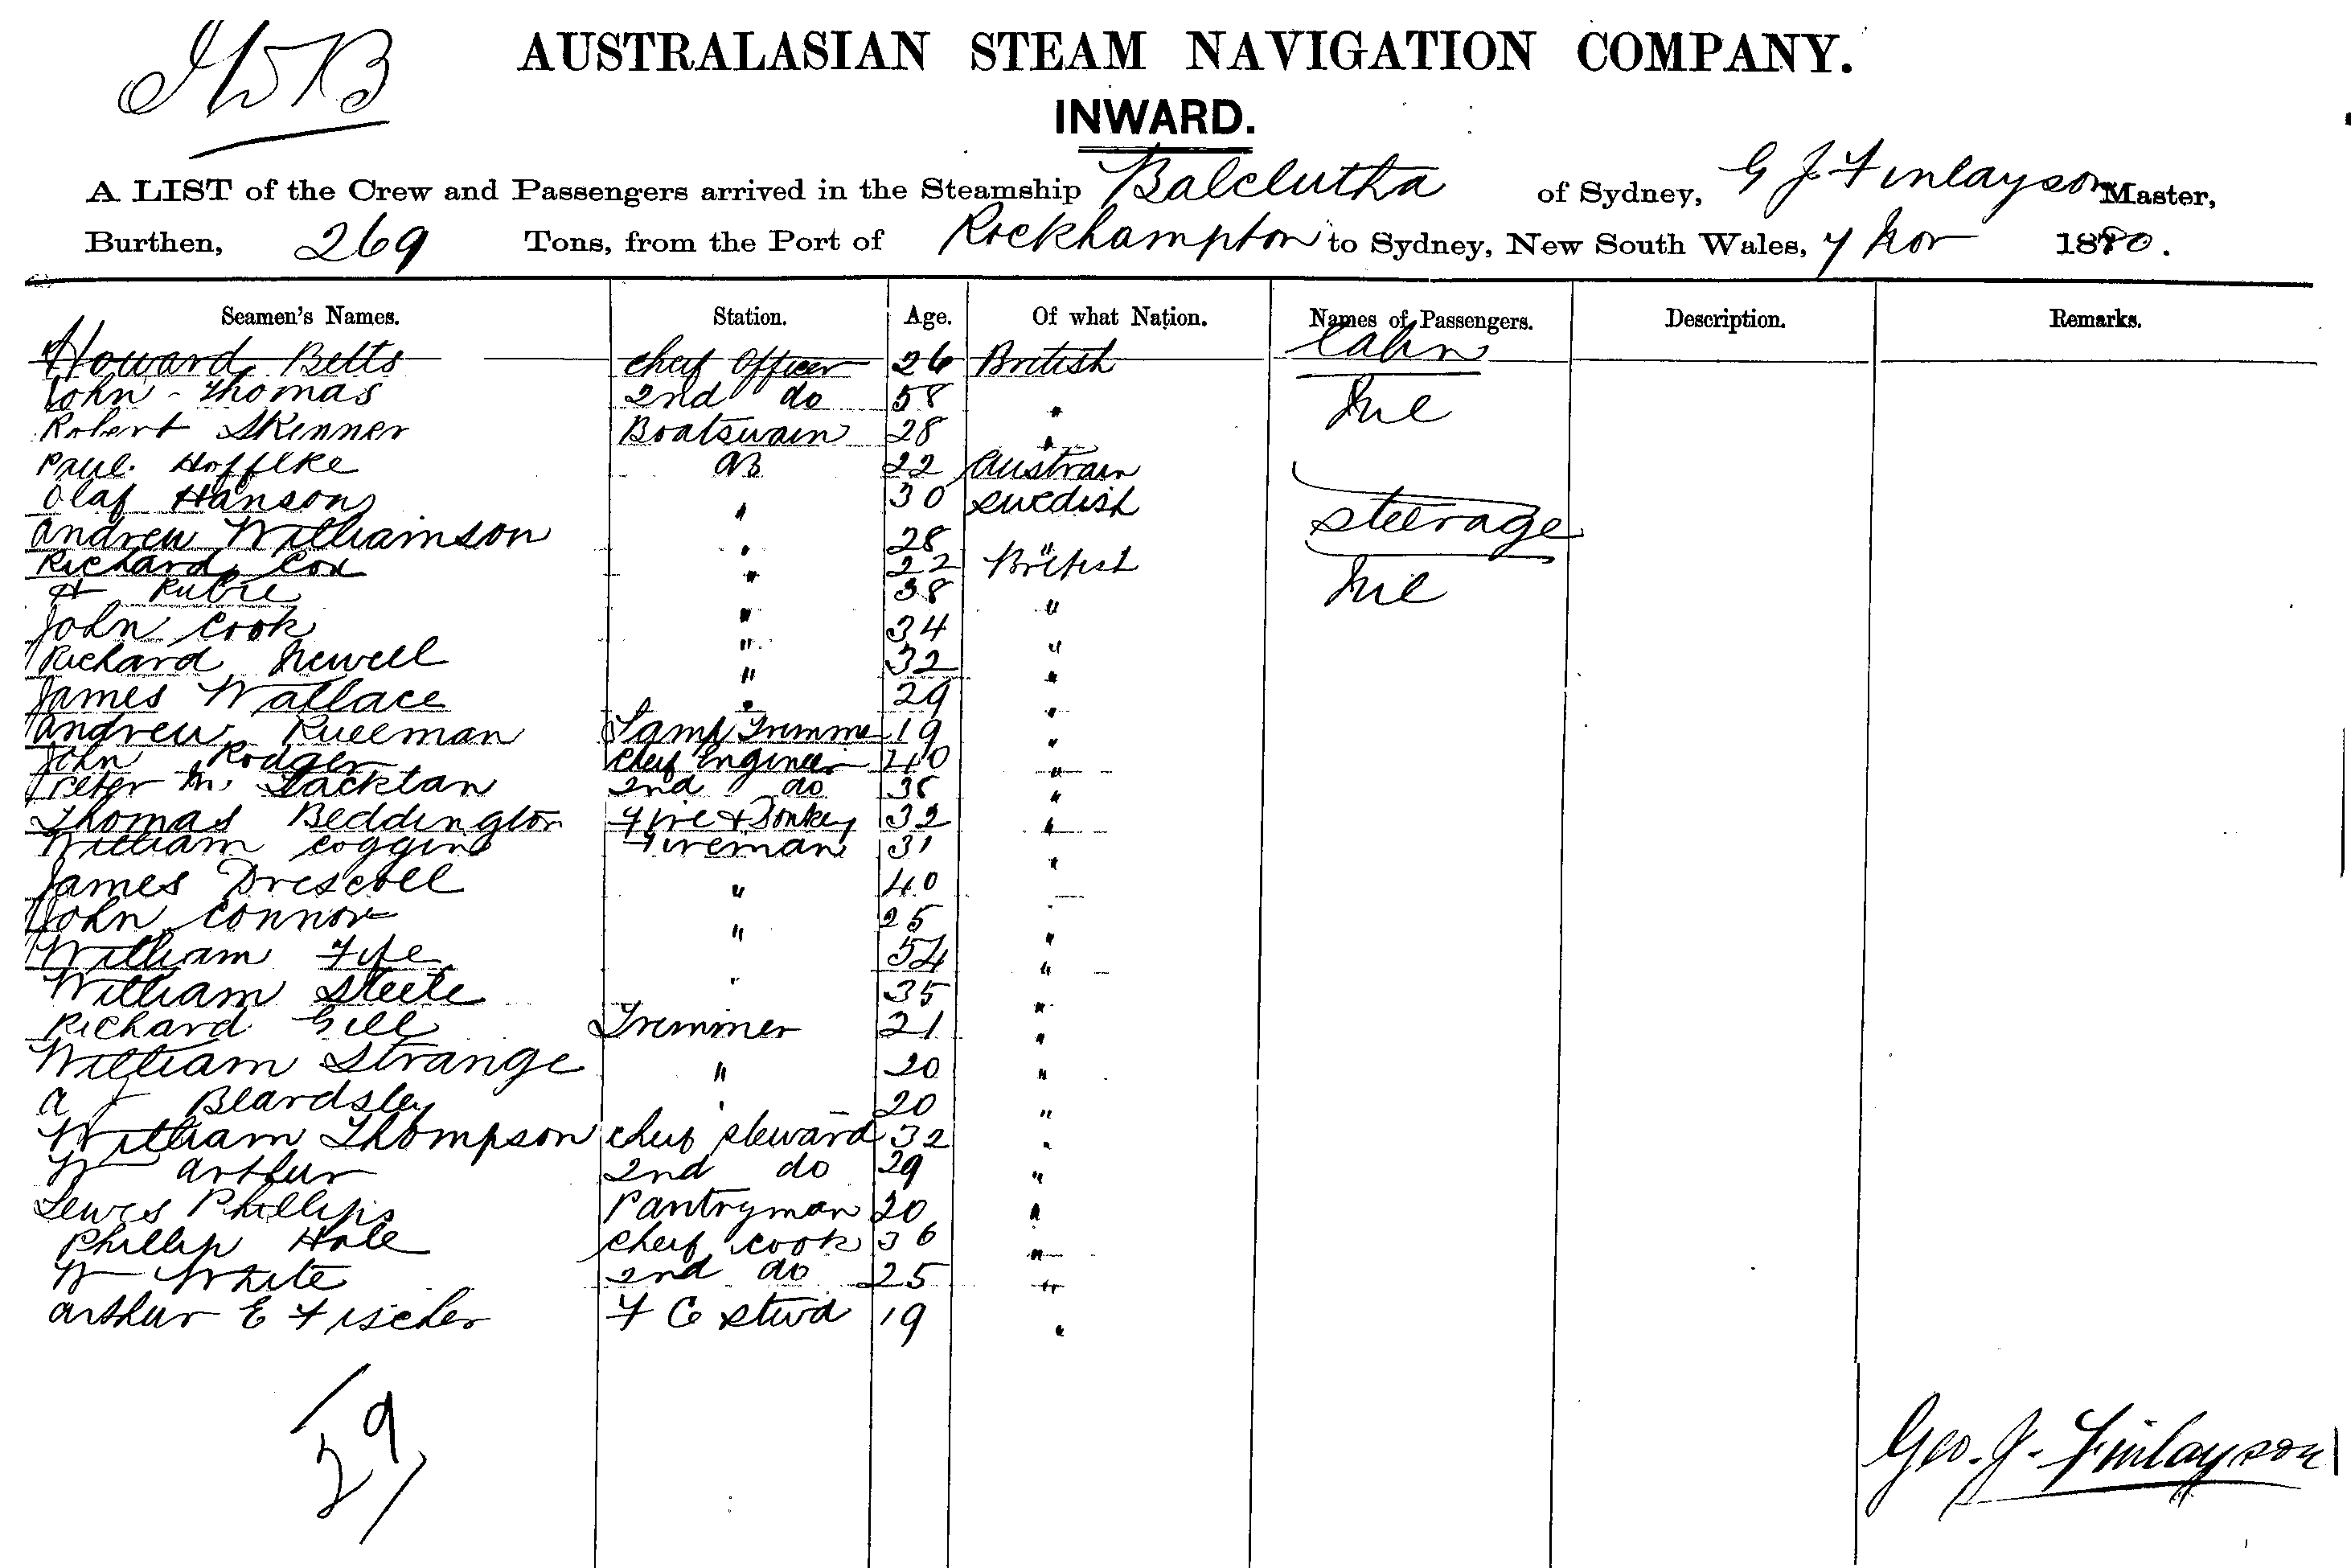 AUSTRALASIAN STEAM NAVIGATION COMPANY.
INWARD.
A LIST of the Crew and Passengers arrived in the Steamship Balclutha of Sydney, G J Finlayson Master,
Burthen, 269 Tons, from the Port of Rockhampton to Sydney, New South Wales, 7 Nov 1880.
Seamen's Names. Station. Age. Of what Nation. Names of Passengers. Description. Remarks.
Howard Betts Chief Officer 26 British Cabin
John Thomas 2nd do 58 " Nil
Robert Skinner Boatswain 28 "
Paul AB 22 Austrain
Olaf Hanson " 30 Swedish Steerage
Andrew Williamson " 28 "
Richard Cox " 22 British Nil
H Rubie " 38 "
John Cook " 34 "
Richard Newell " 32 "
James Wallace " 29 "
Andrew Lamp Trimmer 19 "
John Rodger Chief Engineer 40 "
Peter Mc Lacklan 2nd do 38 "
Thomas Beddington Fire & Donkey 32 "
William Coggins Fireman 31 "
James Driscoll " 40 "
John Connor " 25 "
William Fife " 54 "
William Steele " 35 "
Richard Gill Trimmer 21 "
William Strange " 20 "
A J Beardsley " 20 "
William Thompson Chief Steward 32 "
W Arthur 2nd do 29 "
Lewis Phillips Pantryman 20 "
Phillip Hole Chief Cook 36 "
W White 2nd do 25 "
Arthur E Fischer F C Stwd 19 "
29
Geo. J. Finlayson